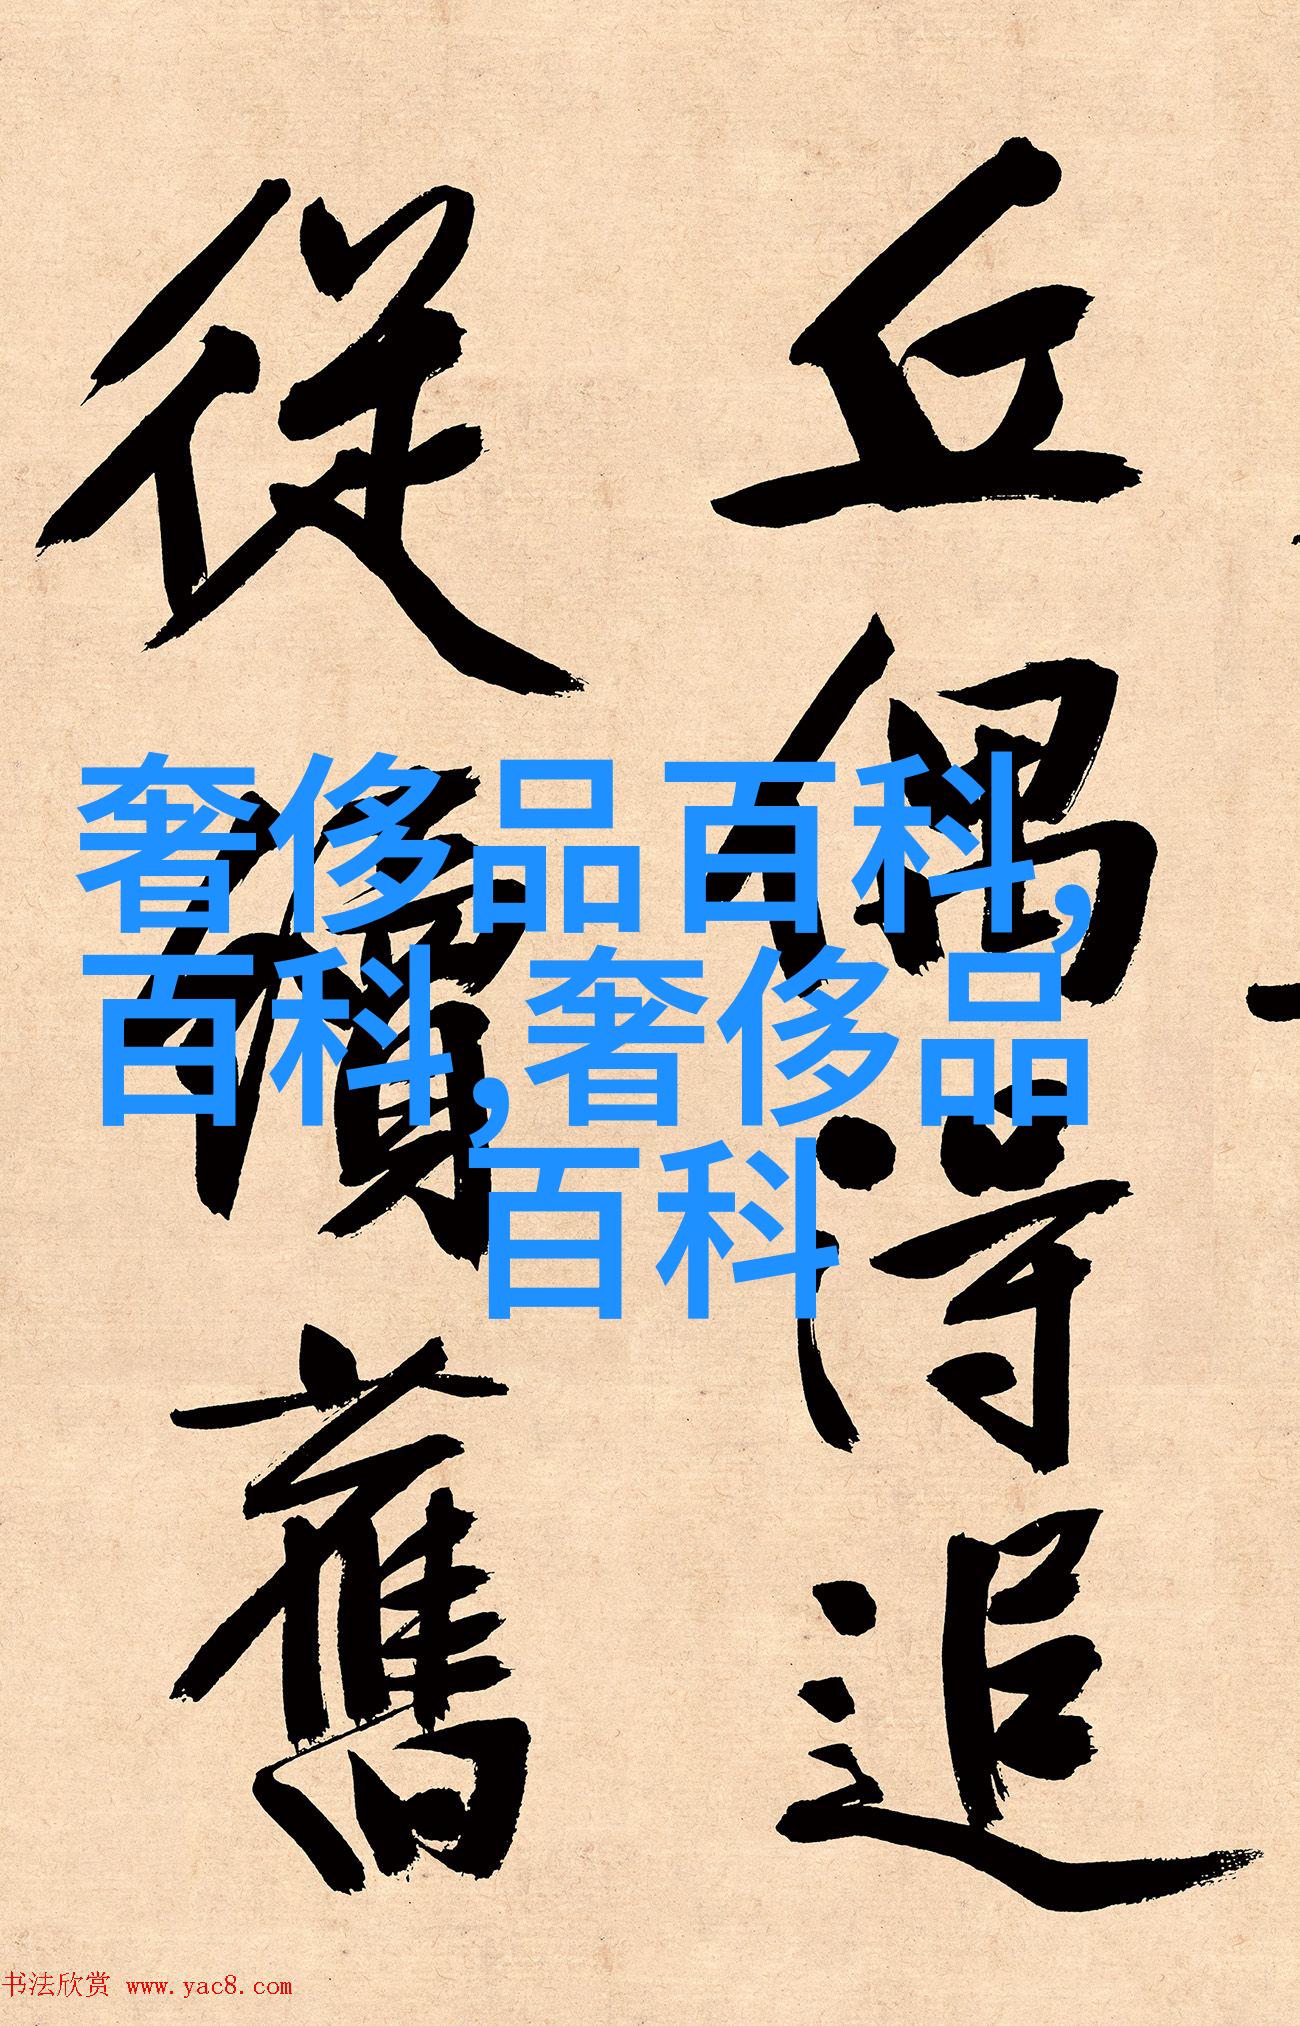 丘偶得追
從賓舊
奢侈品百科,
百科,奢侈品
百科
书法欣赏 www.yac8.com